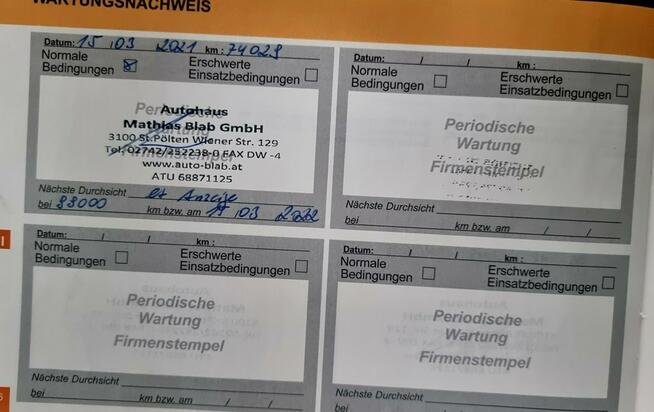 WARTUNGSNACHWEIS
Datum: 15 / 03 / 2021 km: 74029
Normale Bedingungen ☒ Erschwerte Einsatzbedingungen ☐
Periodische Wartung Firmenstempel
Autohaus
Mathias Blab GmbH
3100 St.Pölten Wiener Str. 129
Tel. 02742/252238-0 FAX DW -4
www.auto-blab.at
ATU 68871125
Nächste Durchsicht
bei 88000 km bzw. am / 03 / 2022
Datum: / / km :
Normale Bedingungen ☐ Erschwerte Einsatzbedingungen ☐
Periodische
Wartung
Firmenstempel
Nächste Durchsicht
bei km bzw. am / /
Datum: / / km :
Normale Bedingungen ☐ Erschwerte Einsatzbedingungen ☐
Periodische
Wartung
Firmenstempel
Nächste Durchsicht
bei km bzw. am / /
Datum: / / km :
Normale Bedingungen ☐ Erschwerte Einsatzbedingungen ☐
Periodische
Wartung
Firmenstempel
Nächste Durchsicht
bei km bzw. am / /